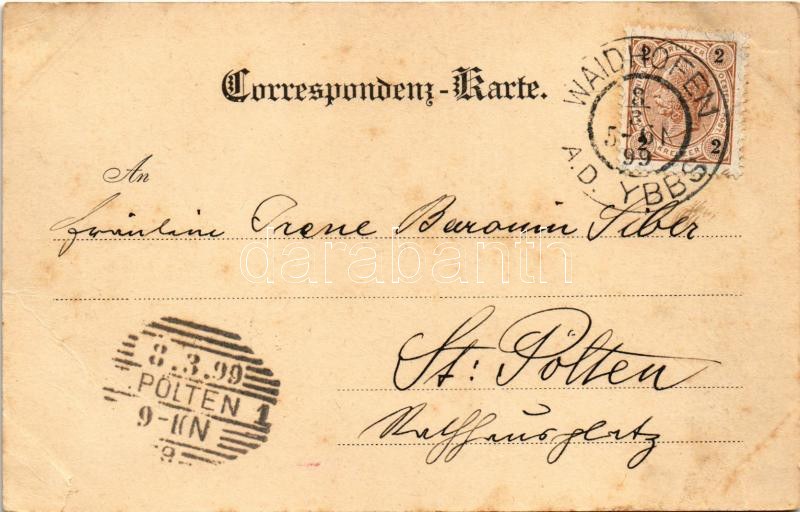 Correspondenz-Karte.
2 KREUZER 2
2 KREUZER 2
WAIDHOFEN
8/3
99
A.D. YBBS
An
Fräulein Irene Baronin Siber
darabanth
St: Pölten
Rathhausplatz
8.3.99
PÖLTEN 1
9-10N